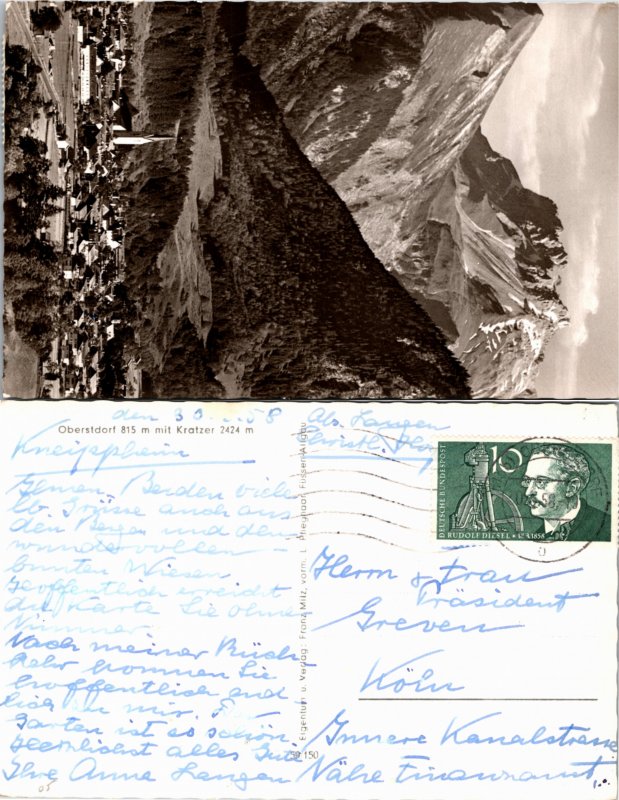 Oberstdorf 815 m mit Kratzer 2424 m
den 30 58
Kneippheim
Ihnen Beiden viele
lb. Grüsse auch aus
den Bergen und den
wundervollen
bunten Wiesen
Hoffentlich erreicht
die Karte Sie ohne
Nummer.
Nach meiner Rück
kehr kommen Sie
hoffentlich
mir.
Garten ist so schön.
Herzlichst alles Gute
Ihre Anne Langen
Eigentum u. Verlag: Franz Milz, vorm. L. Plieghaar, Füssen-Allgäu
59 150
Abs. Langen
Christl.
DEUTSCHE BUNDESPOST
10
RUDOLF DIESEL * 18.3.1858
Herrn & Frau
Präsident
Greven
Köln
Innere Kanalstrasse
Nähe Finanzamt